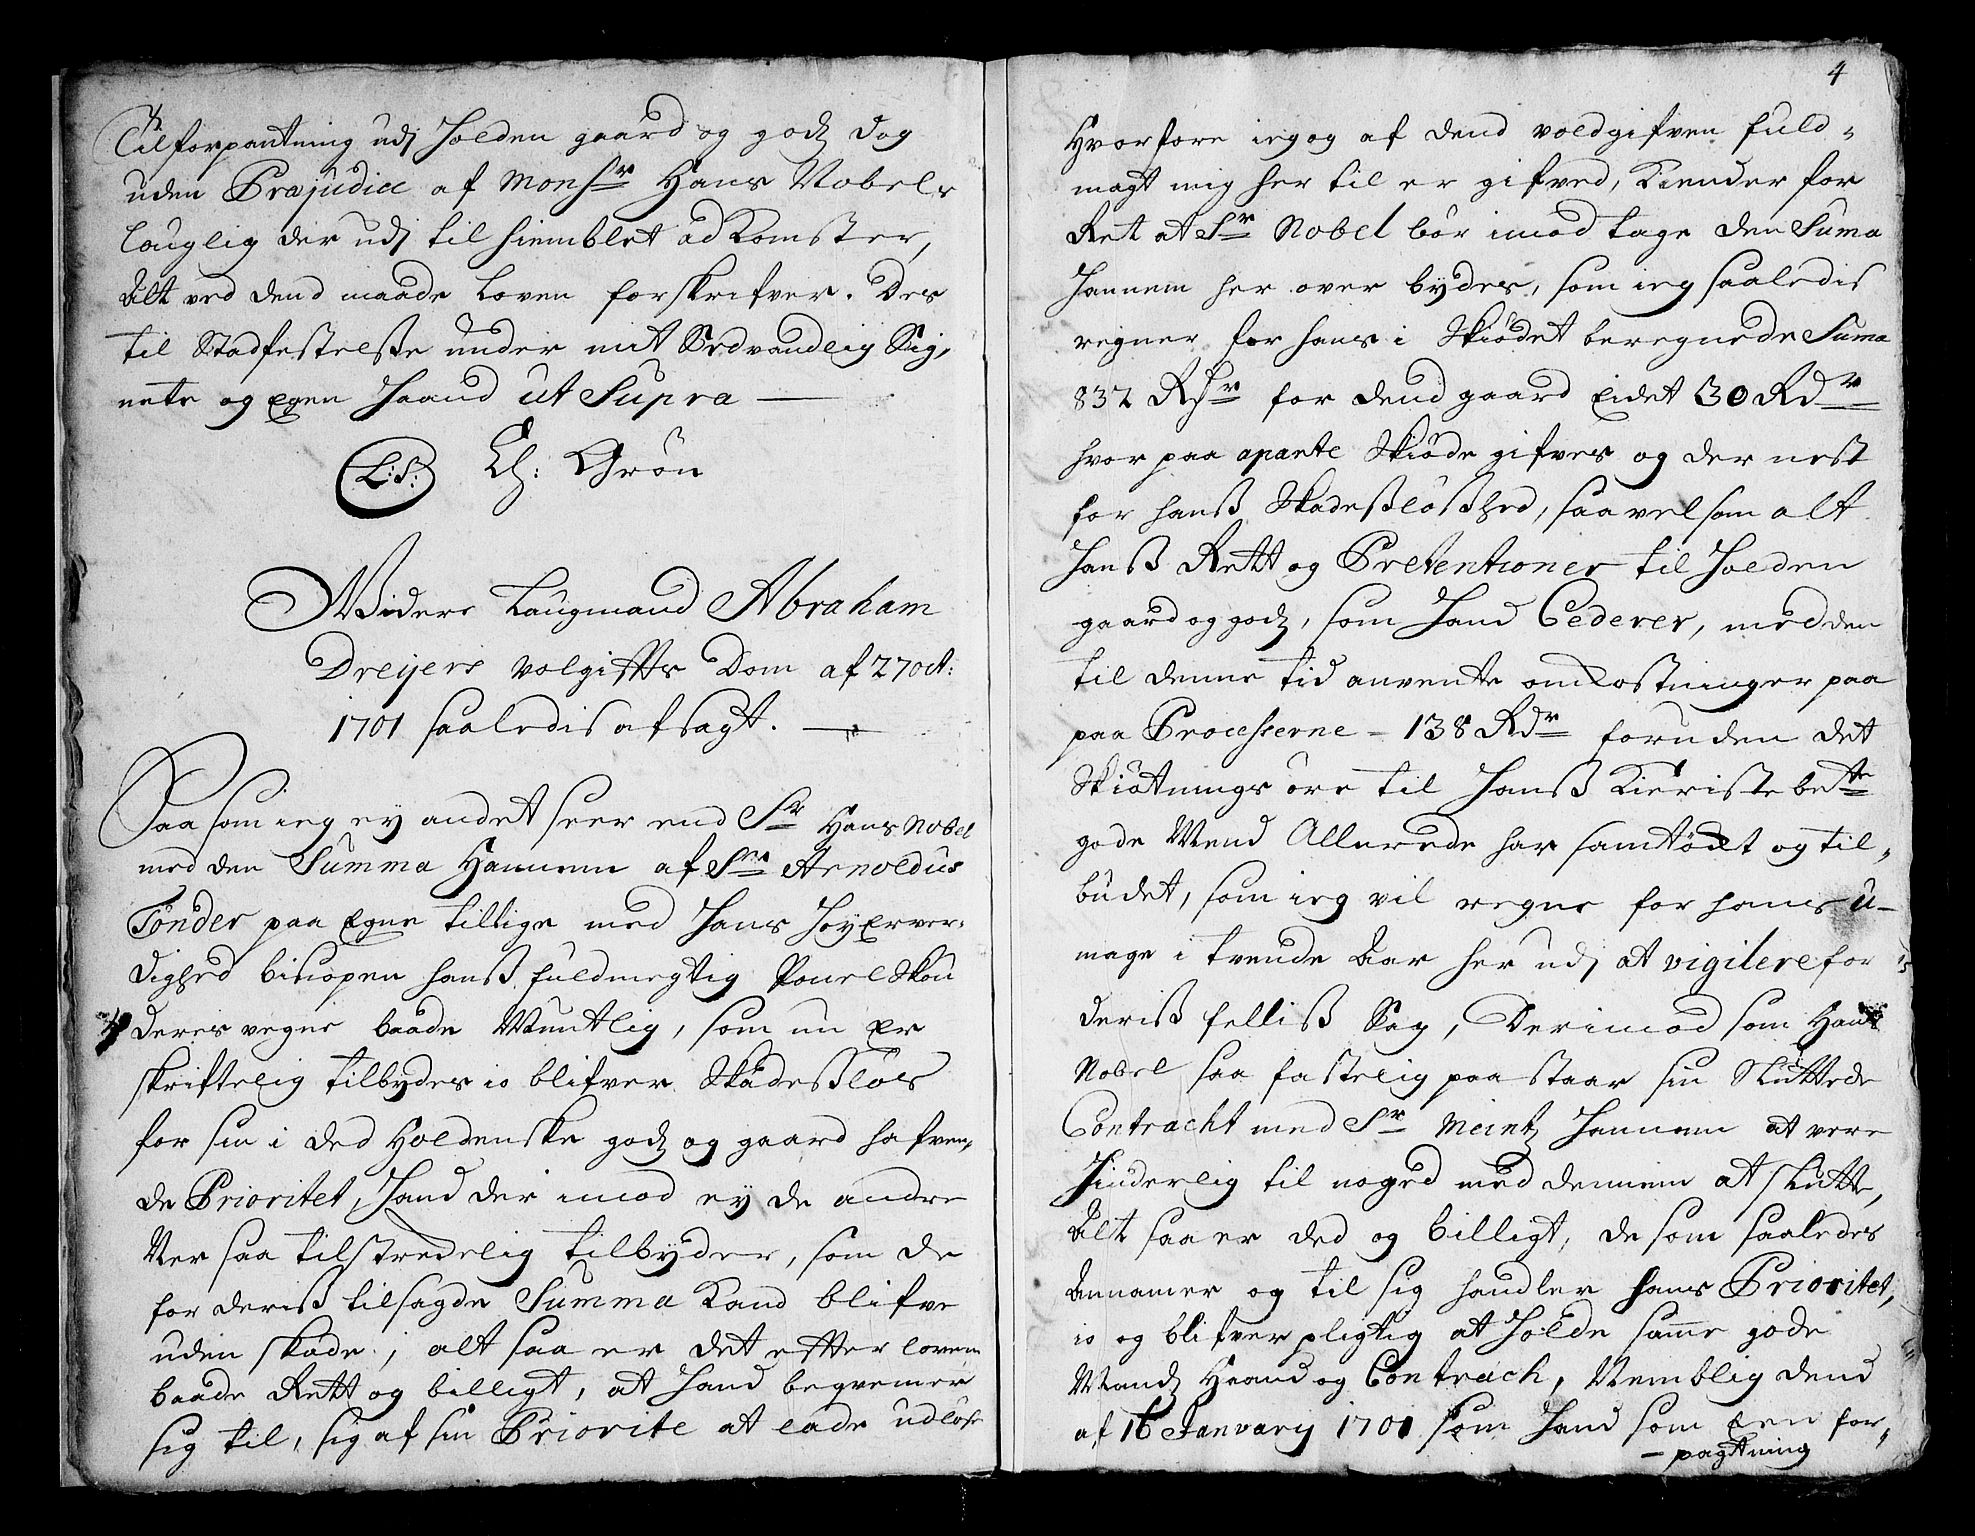 Tilforpantning udj Holden gaard og godz dog
uden Præjudice af Monsr Hans Nobels
lauglig der udj til hiemblet adkomster,
Alt ved dend maade Loven forskrifver. Des
til Stadfestelse under mit Sedvandlig Sig,
nete og Egen Haand ut Supra —
L:S: Ch: Grön
Widere Laugmand Abraham
Dreyers volgiffts Dom af 27 oct:
1701 saaledis afsagt. —
Saa som ieg ey andet seer end Sr Hans Nobel
med den Summa Hannem af Sr Arnoldus
Tönder paa Egne tillige med Hans HöyErver-
dighed bisiopen hanß fuldmegtig Powel Skou
deres vegne baade Muntlig, som nu Er
skriftelig tilbydes io blifver Skadeßlös
for sin i ded Holdenske godz og gaard hafven,
de Prioritet, Hand der imod ey de andre
Ver saa tilstredelig tilbyder, som de
for deriß tilsagde Summa Kand blifve
uden skade, alt saa er det efter loven
baade Rett og billigt, at Hand beqvemer
sig til, sig af sin Priorite at lade udlöse
4
Hvorfore ieg og af dend voldgifven fuld-
magt mig her til er gifved, Kiender for
Ret at Sr Nobel bör imod tage den Suma
Hannem her over bydes, som ieg saaledis
regner for hans i Skiödet beregnede Suma
832 Rdr for dend gaard Eidet 30 Rdr
hvor paa aparte Skiöde gifves og der nest
for hanß Skadeßlößhed, saa vel som alt
Hanß Rett og Pretentioner til Holden
gaard og godz, som Hand Cederer, med den
til denne tid anvente omkostninger paa
paa Processerne - 138 Rdr foruden det
Skiötnings öre til Hanß Kieriste bete
gode Mend Allerede har samtöckt og til-
budet, som ieg vil regne for hans u-
mage i trende Aar her udj at vigilere for
deriß felliß Sag, Derimod som Hans
Nobel saa fastelig paastaar sin Sluttede
Contracht med Sr Meintz Hannem at vere
Hinderlig til noged med dennem at slutte,
Alt saa er ded og billigt, de som saaledes
Annamer og til sig handler hans Prioritet,
io og blifver pligtig at Holde samme gode
Mandz Haand og Contrach, Nemblig dend
af 16 January 1701 som Hand som Een for-
- pagtning